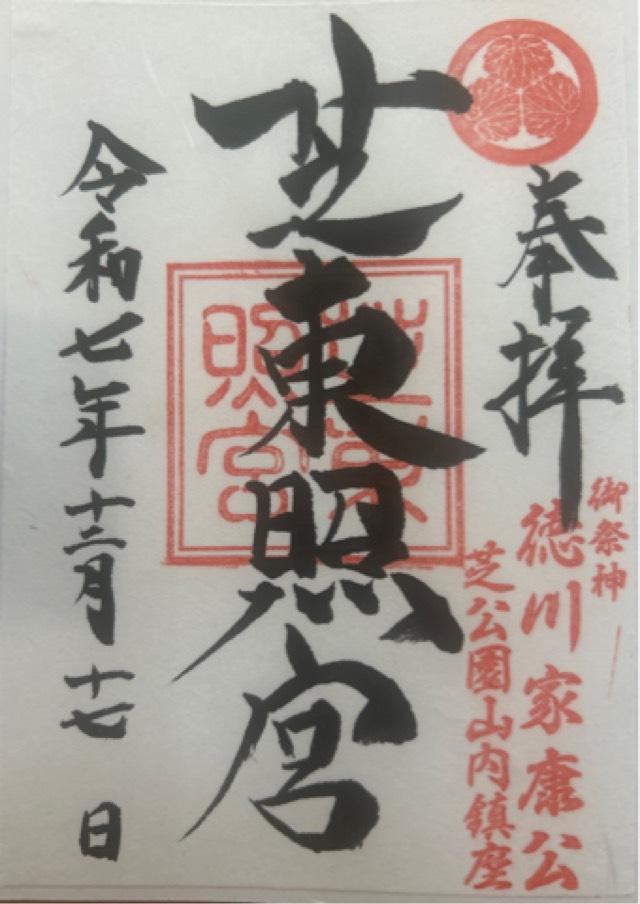 奉拝
御祭神
徳川家康公
芝公園山内鎮座
芝東照宮
芝東照宮
令和七年十二月十七日